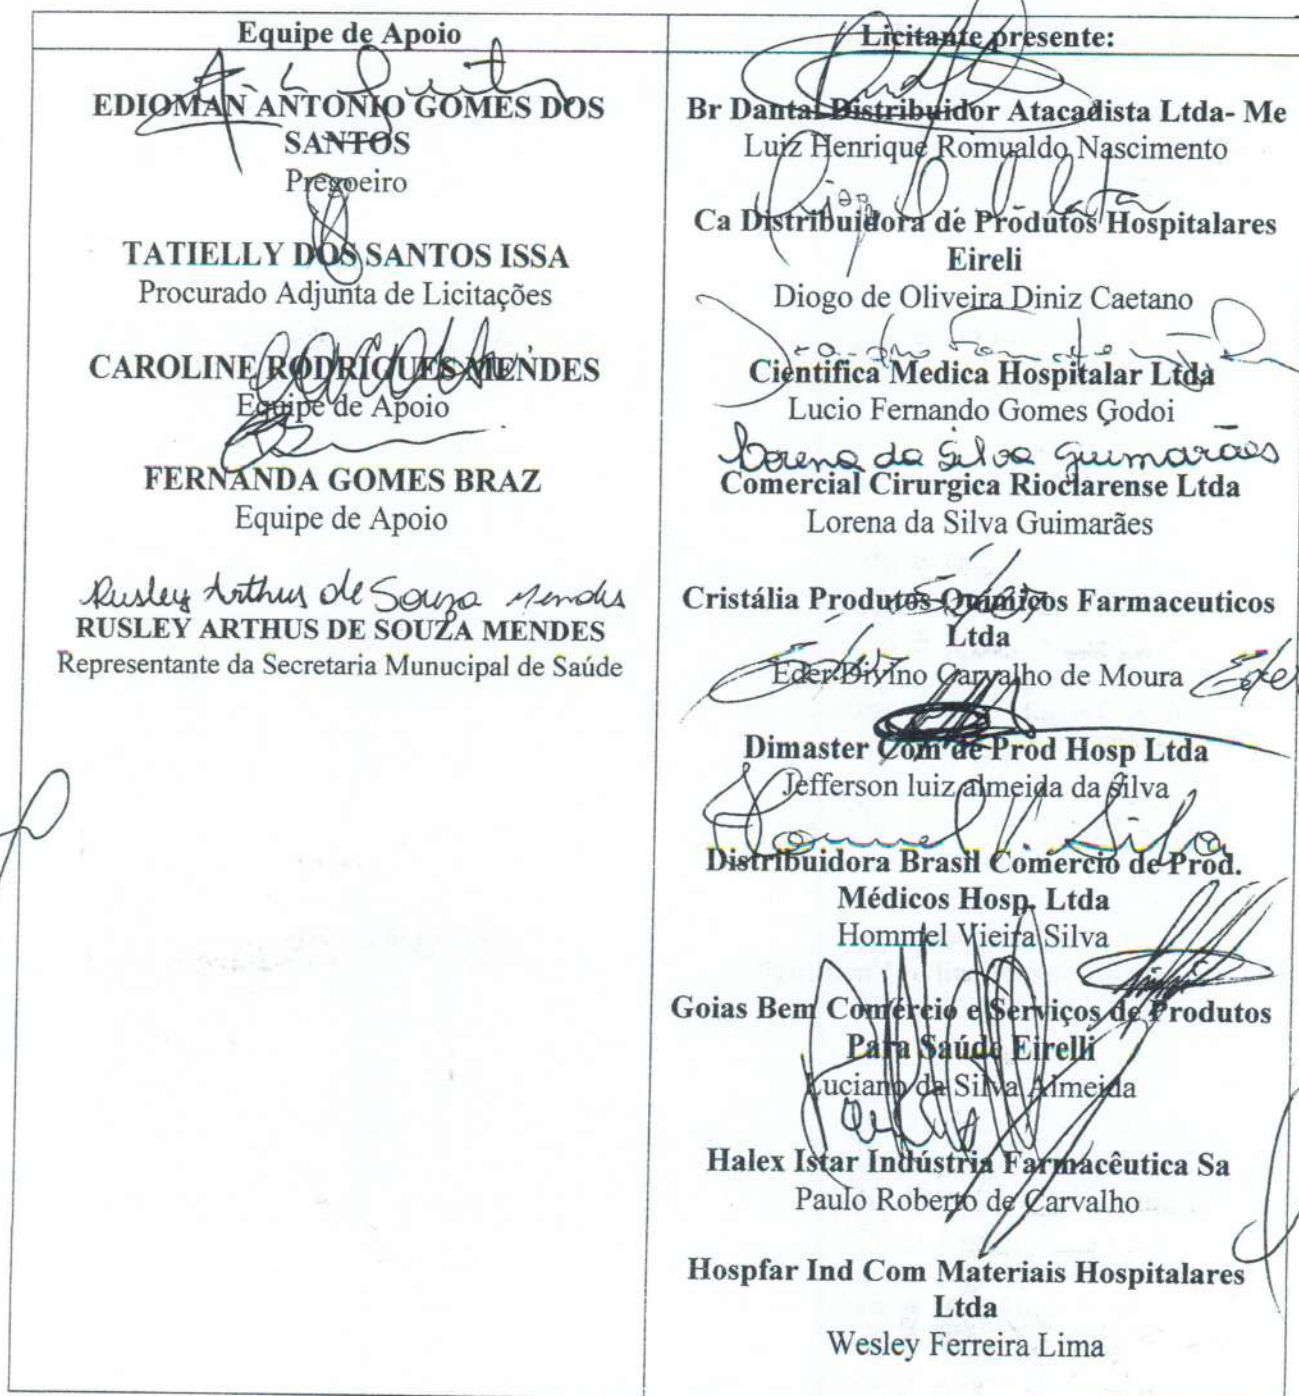 Equipe de Apoio
EDIOMAN ANTONIO GOMES DOS
SANTOS
Pregoeiro
TATIELLY DOS SANTOS ISSA
Procurado Adjunta de Licitações
CAROLINE RODRIGUES MENDES
Equipe de Apoio
FERNANDA GOMES BRAZ
Equipe de Apoio
Rusley Arthus de Souza Mendes
RUSLEY ARTHUS DE SOUZA MENDES
Representante da Secretaria Munucipal de Saúde
Licitante presente:
Br Dantal Distribuidor Atacadista Ltda- Me
Luiz Henrique Romualdo Nascimento
Ca Distribuidora de Produtos Hospitalares
Eireli
Diogo de Oliveira Diniz Caetano
Cientifica Medica Hospitalar Ltda
Lucio Fernando Gomes Godoi
Lorena da Silva Guimarães
Comercial Cirurgica Rioclarense Ltda
Lorena da Silva Guimarães
Cristália Produtos Químicos Farmaceuticos
Ltda
Eder Divino Carvalho de Moura
Dimaster Com de Prod Hosp Ltda
Jefferson luiz almeida da silva
Hommel V. Silva
Distribuidora Brasil Comercio de Prod.
Médicos Hosp. Ltda
Hommel Vieira Silva
Goias Bem Comércio e Serviços de Produtos
Para Saúde Eirelli
Luciano da Silva Almeida
Halex Istar Indústria Farmacêutica Sa
Paulo Roberto de Carvalho
Hospfar Ind Com Materiais Hospitalares
Ltda
Wesley Ferreira Lima